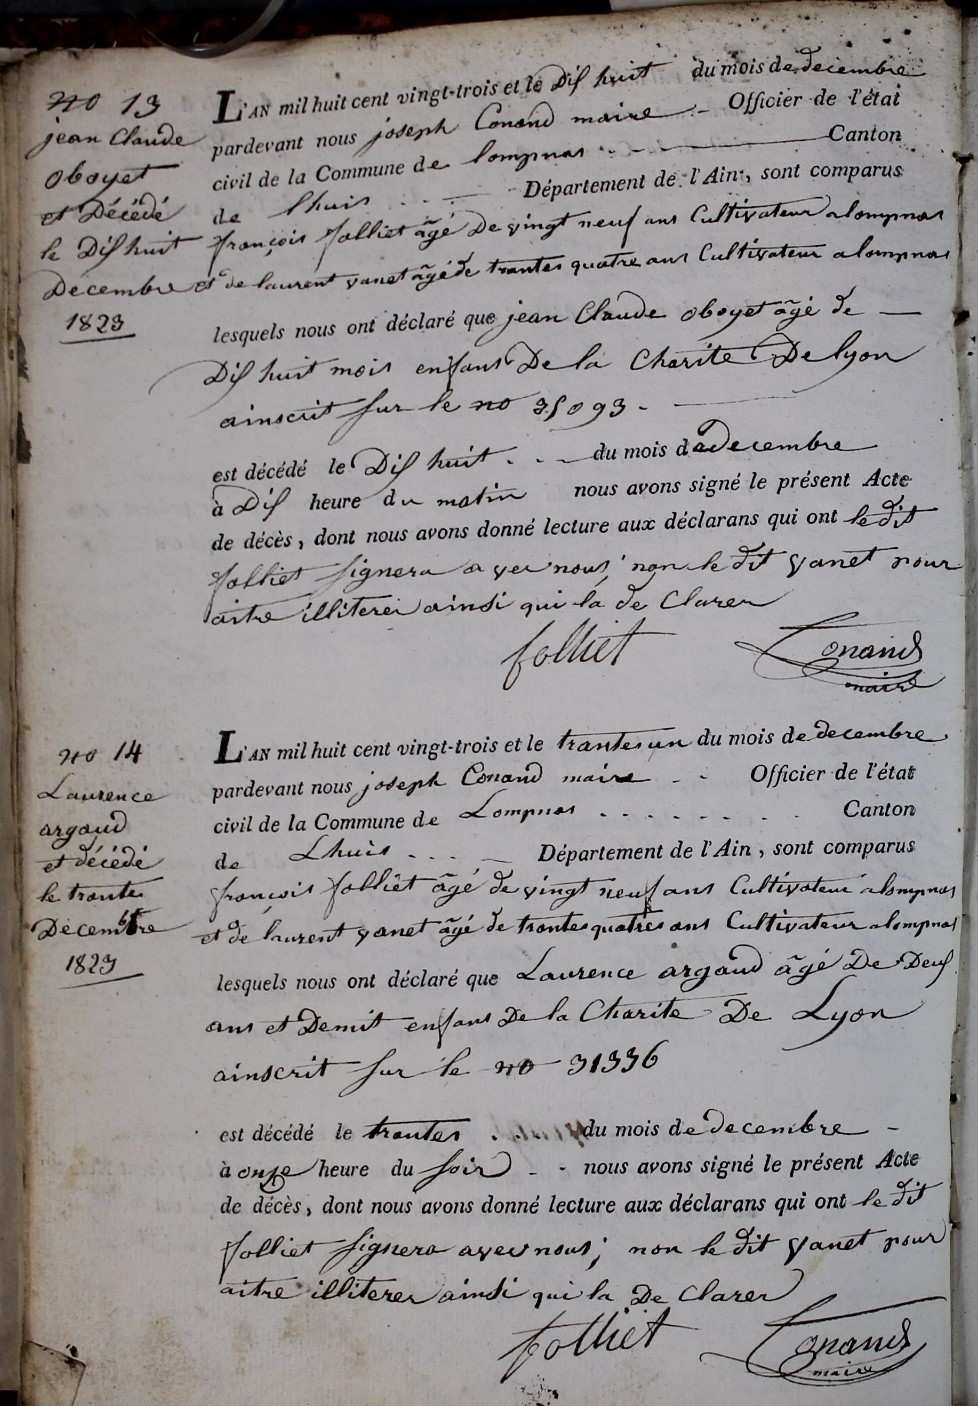 no 13
jean Claude
oboyet
et Décédé
le Dishuit
Decembre
1823
L'AN mil huit cent vingt-trois et le Dis huit du mois de decembre
pardevant nous joseph Conand maire Officier de l'état
civil de la Commune de lompnas Canton
de lhuis Département de l'Ain, sont comparus
françois folliet âgé De vingt neuf ans Cultivateur a lompnas
et de laurent vanet âgé de trantes quatre ans Cultivateur a lompnas
lesquels nous ont déclaré que jean Claude oboyet âgé de
Dis huit mois enfans De la Charite De lyon
ainscrit sur le no 35093
est décédé le Dis huit du mois de decembre
à Dis heure du matin nous avons signé le présent Acte
de décès, dont nous avons donné lecture aux déclarans qui ont le dit
folliet signera avec nous, non le dit vanet pour
aitre illiterer ainsi qui la de Clarer
folliet Conand
maire
no 14
Laurence
argaud
et décédé
le trante
Decembre
1823
L'AN mil huit cent vingt-trois et le trantes un du mois de decembre
pardevant nous joseph Conand maire Officier de l'état
civil de la Commune de Lompnas Canton
de Lhuis Département de l'Ain, sont comparus
françois folliet âgé de vingt neuf ans Cultivateur a lompnas
et de laurent vanet âgé de trantes quatres ans Cultivateur a lompnas
lesquels nous ont déclaré que Laurence argaud âgé De Deus
ans et Demit enfans De la Charite De Lyon
ainscrit sur le no 31336
est décédé le trantes du mois de decembre
à onze heure du soir nous avons signé le présent Acte
de décès, dont nous avons donné lecture aux déclarans qui ont le dit
folliet signera avec nous; non le dit vanet pour
aitre illiterer ainsi qui la De Clarer
folliet Conand
maire